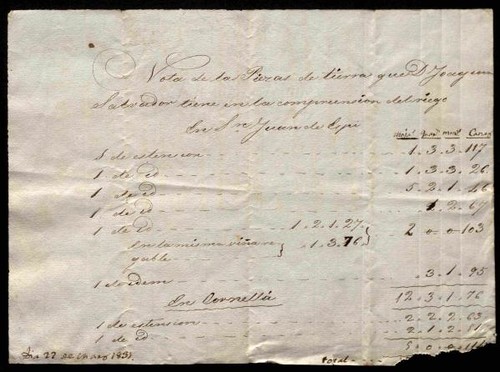 Nota de las Piezas de tierra que Dn. Joaquin
Salvador tiene en la comprension del riego
En Sn. Juan de Espi
1 de estension 1 . 3 . 3 . 117
1 de id 1 . 3 . 3 . 26
1 de id 5 . 2 . 1 . 46
1 de id 1 . 2 . 67
1 de id 1 . 2 . 1 . 27 . } 2 0 . 0 . 103
en la misma viña re
gable . 1 . 3 . 76
1 de idem . 3 . 1 . 95
12 . 3 . 1 . 76
En Cornellá
1 de estension 2 . 2 . 2 . 63
1 de id 2 . 1 . 2 . 51
5 . 0 . 0 .
Dia 22 de 1831.
total